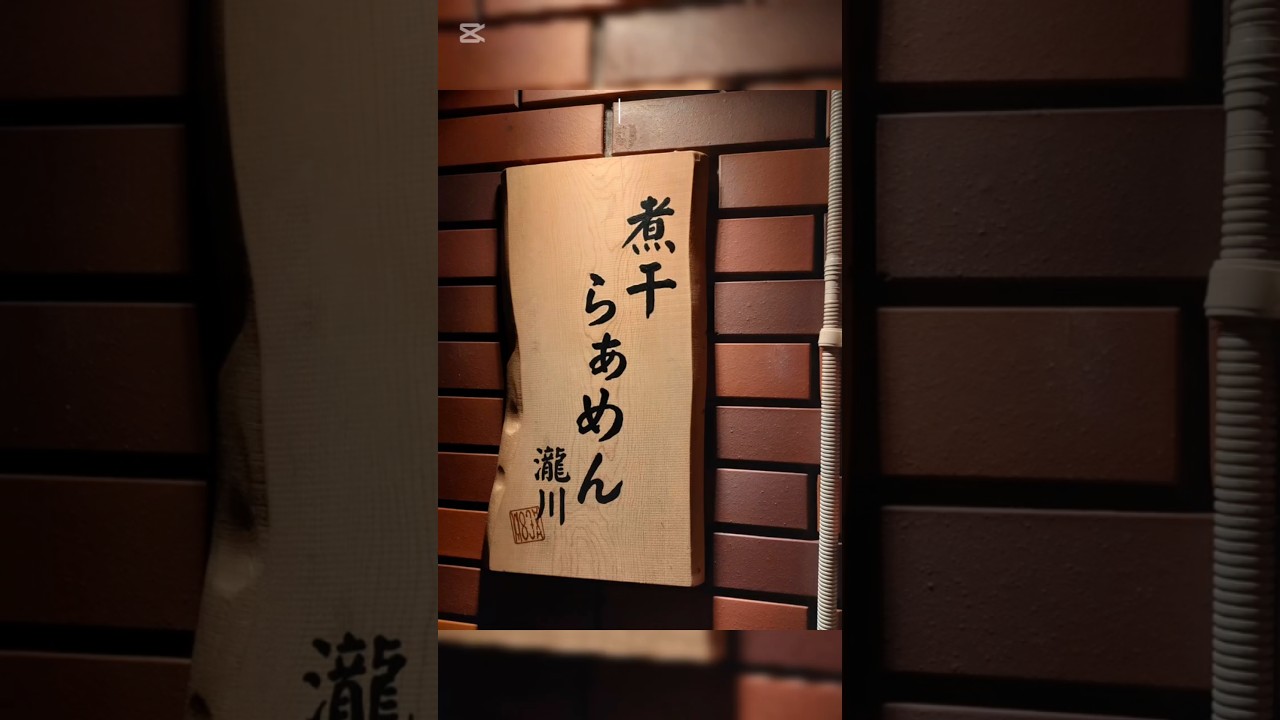 煮干
らあめん
瀧川